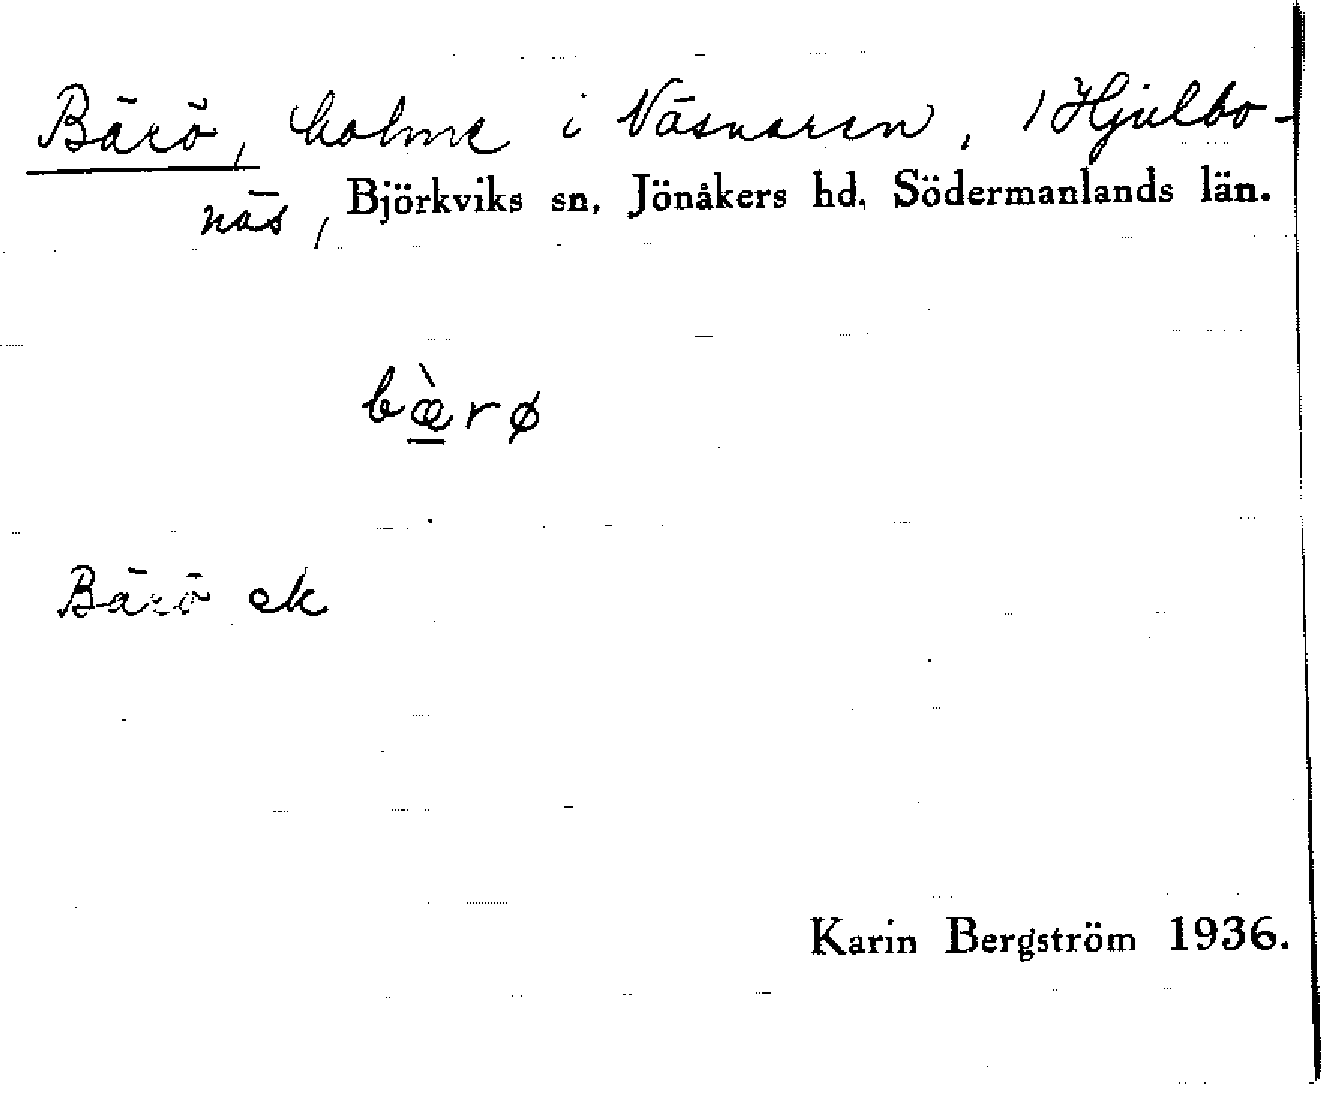 Bärö, holme i Näsnaren, 1 Hjulbo-
näs, Björkviks sn, Jönåkers hd. Södermanlands län.
bæ̀rø
Bärö ek
Karin Bergström 1936.